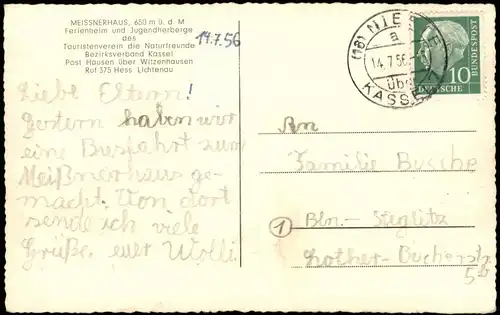 MEISSNERHAUS, 650 m ü. d. M
Ferienheim und Jugendherberge
des
Touristenverein die Naturfreunde
Bezirksverband Kassel
Post Hausen über Witzenhausen
Ruf 375 Hess Lichtenau
14.7.56
Liebe Eltern!
Gestern haben wir
eine Busfahrt zum
Meißnerhaus ge-
macht. Von dort
sende ich viele
Grüße euer Wolli
(16) NIE
a
14.7.56
über
KASSEL
10
DEUTSCHE
BUNDESPOST
An
Familie Busche
1 Bln.-Steglitz
Lother-Bucherstr.
5b